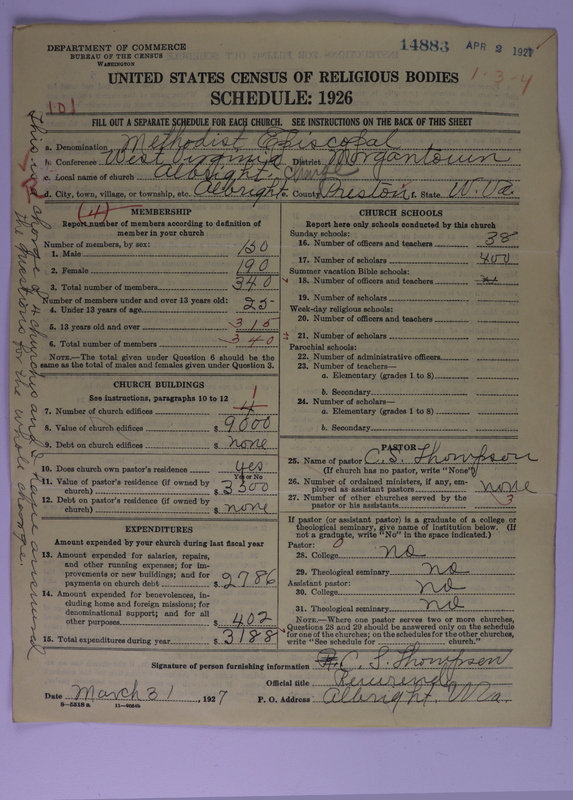 DEPARTMENT OF COMMERCE
BUREAU OF THE CENSUS
WASHINGTON
14883 APR 2 1927
UNITED STATES CENSUS OF RELIGIOUS BODIES
1-3-4
SCHEDULE: 1926
101
FILL OUT A SEPARATE SCHEDULE FOR EACH CHURCH. SEE INSTRUCTIONS ON THE BACK OF THIS SHEET
a. Denomination Methodist Episcopal
b. Conference West Virginia District Morgantown
c. Local name of church Albright
d. City, town, village, or township, etc. Albright e. County Preston f. State W. Va.
(4)
MEMBERSHIP
Report number of members according to definition of member in your church
Number of members, by sex:
1. Male 150
2. Female 190
3. Total number of members 340
Number of members under and over 13 years old:
4. Under 13 years of age 25
5. 13 years old and over 315
6. Total number of members 340
NOTE.—The total given under Question 6 should be the
same as the total of males and females given under Question 3.
CHURCH BUILDINGS
See instructions, paragraphs 10 to 12
1
7. Number of church edifices 4
8. Value of church edifices $ 9000
9. Debt on church edifices $ none
10. Does church own pastor's residence yes
Yes or No
11. Value of pastor's residence (if owned by
church) $ 3500
12. Debt on pastor's residence (if owned by
church) $ none
EXPENDITURES
Amount expended by your church during last fiscal year
13. Amount expended for salaries, repairs,
and other running expenses; for im-
provements or new buildings; and for
payments on church debt $ 2786
14. Amount expended for benevolences, in-
cluding home and foreign missions; for
denominational support; and for all
other purposes $ 402
15. Total expenditures during year $ 3188
CHURCH SCHOOLS
Report here only schools conducted by this church
Sunday schools:
16. Number of officers and teachers 38
17. Number of scholars 400
Summer vacation Bible schools:
18. Number of officers and teachers
19. Number of scholars
Week-day religious schools:
20. Number of officers and teachers
21. Number of scholars
Parochial schools:
22. Number of administrative officers
23. Number of teachers—
a. Elementary (grades 1 to 8)
b. Secondary
24. Number of scholars—
a. Elementary (grades 1 to 8)
b. Secondary
PASTOR
25. Name of pastor C. S. Thompson
(If church has no pastor, write "None")
26. Number of ordained ministers, if any, em-
ployed as assistant pastors none
27. Number of other churches served by the
pastor or his assistants 3
If pastor (or assistant pastor) is a graduate of a college or
theological seminary, give name of institution below. (If
not a graduate, write "No" in the space indicated.)
Pastor:
28. College no
29. Theological seminary no
Assistant pastor:
30. College no
31. Theological seminary no
NOTE.—Where one pastor serves two or more churches,
Questions 28 and 29 should be answered only on the schedule
for one of the churches; on the schedules for the other churches,
write "See schedule for church."
Signature of person furnishing information C. S. Thompson
Official title
Date March 31, 1927 P. O. Address Albright, W. Va.
8—5518 a
This is a charge of 4 churches and I have answered
the questions for the whole charge.